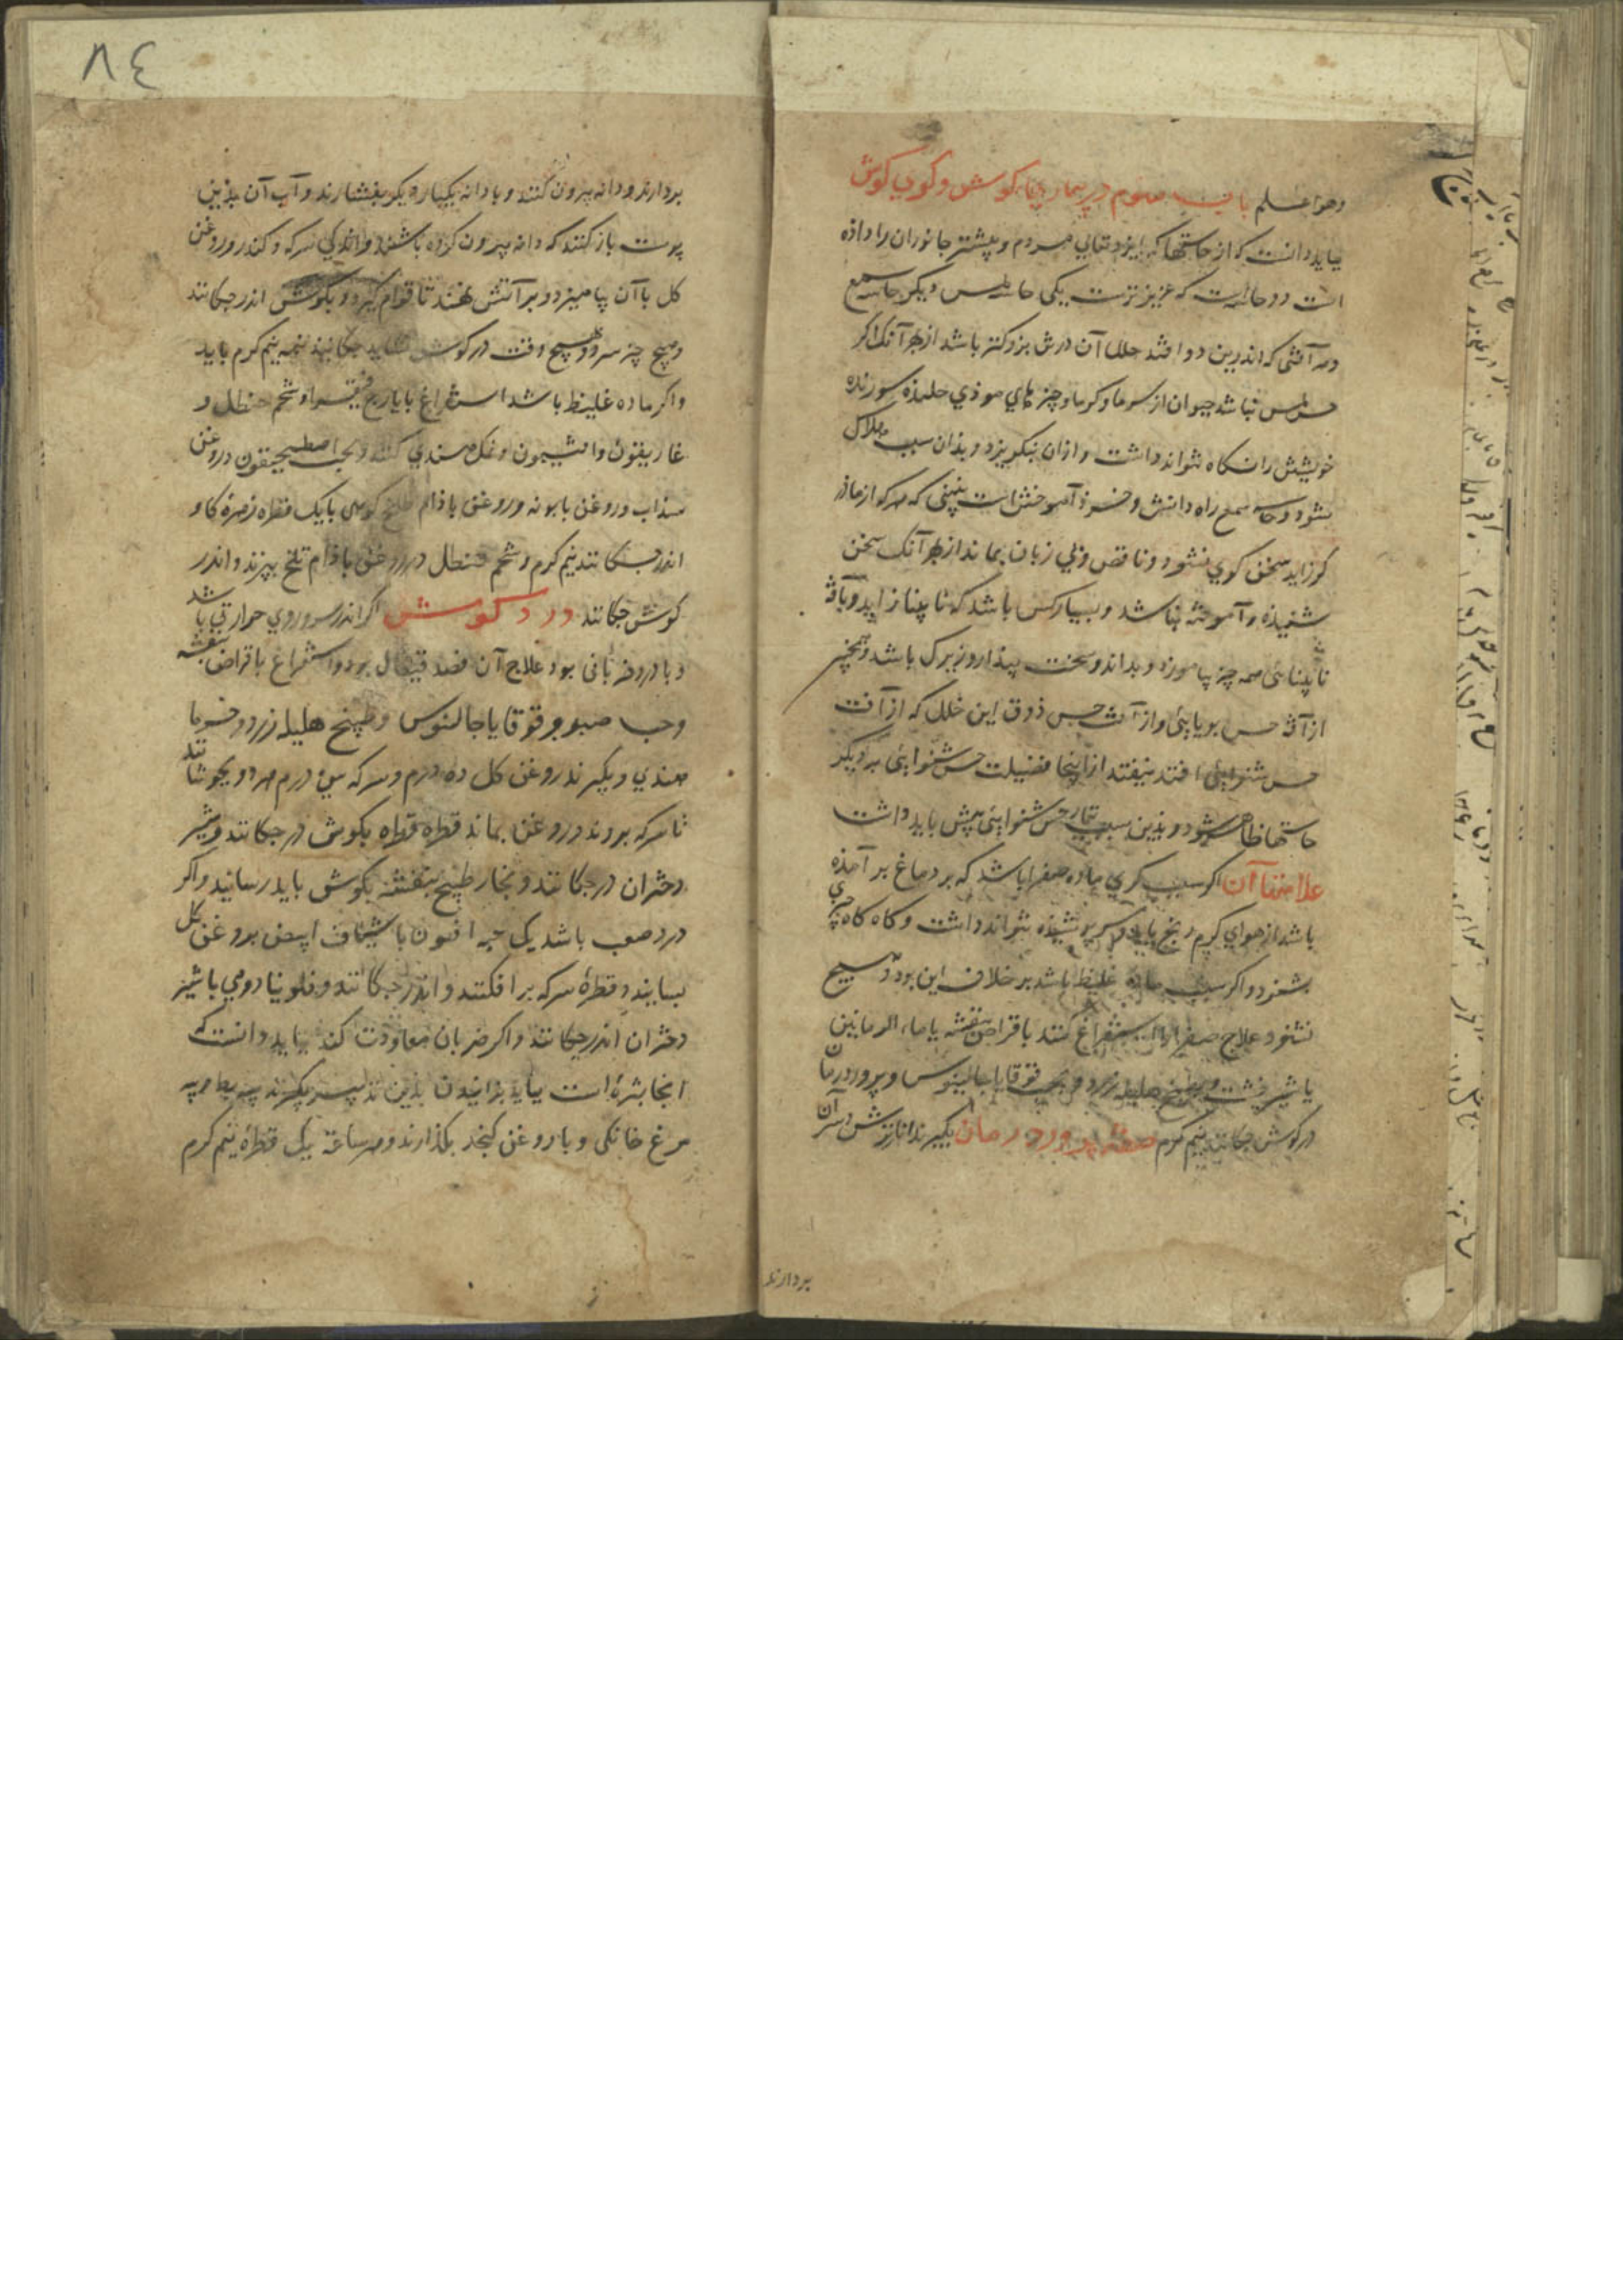 وهو اعلم باب سوم در بیماریهاء کوش و کری کوش
بباید دانست که از حاستها که ایزد تعالی مردم و بیشتر جانوران را داذه
است دو حاسه است که عزیزترست یکی حاسه لمس و دیکر حاسه سمع
و هر آفتی که اندرین دو افتد خلل آن درش بزرکتر باشد از بهر آنک اکر
حس لمس نباشد حیوان از سرما و کرما و چیزهای موذی جلنده سوزنده
خویشتن را نکاه نتواند داشت و از ان بنکریزد و بذان سبب هلاک
شود و حاسه سمع راه دانش و خرذ آموختن است نبینی که هرکه از ماذر
کر زاید سخن کوی نشود و ناقص و بی زبان بماند از بهر آنک سخن
شنیذه و آموخته نباشد و بسیار کس باشد که نابینا زاید و با آفة
نابینائی همه چیز بیاموزد و بداند و سخت بیذار و زیرک باشد و همچنین
از آفة حس بویایی و از آفت حس ذوق این خلل که از آفت
حس شنوایی افتد نیفتد از اینجا فضیلت حس شنوایی بر دیکر
حاستها ظاهر شود و بذین سبب تیمار حس شنوایی بیش باید داشت
علامتها آن اکر سبب کری ماده صفرا باشد که بر دماغ بر آمذه
باشد از هوای کرم رنج یابد و سر پوشیذه نتواند داشت و کاه کاه چیزی
بشنود و اکر سبب ماده غلیظ باشد بر خلاف این بود و هیچ
نشنود علاج صفرا را استفراغ کنند باقراص بنفشه یا ماء الرمانین
یا شیرخشت و طبیخ هلیله زرد و حب قوقایا جالینوس و پرورد رمان
در کوش جکانند نیم کرم صفة پرورد رمان بکیرند انار ترش و سر آن
بردارند
٨٤
بردارند و دانه بیرون کنند و با دانه یکپاره یکو بفشارند و آب آن بذین
پوست باز کنند که دانه بیرون کرده باشند و اندکی سرکه و کندر و روغن
کل با آن بیامیزد و بر آتش نهند تا قوام کیرد و بکوش اندر جکانند
و هیچ چیز سرد و هیچ وقت در کوش نشاید جکانید همه نیم کرم باید
و اکر ماده غلیظ باشد استفراغ بایارج فیقرا و شحم حنظل و
غاریقون و افتیمون و نمک هندی کنند و بحب اصطمخیقون و روغن
سذاب و روغن بابونه و روغن باذام تلخ کوهی با یک قطره زهره کاو
اندر جکانند نیم کرم و شحم حنظل در روغن باذام تلخ بپزند و اندر
کوش جکانند درد کوش اکر اندر سر و روی حرارتی باشد
و با درد ضربانی بود علاج آن فصد قیفال بود و استفراغ باقراص بنفشه
و حب صبر و قوقایا جالنوس و طبیخ هلیله زرد و خرما
هندی و بکیرند روغن کل ده درم و سرکه سی درم هر دو بجوشانند
تا سرکه برود و روغن بماند قطره قطره بکوش در جکانند و شیر
دختران در جکانند و بخار طبیخ بنفشه بکوش باید رسانید و اکر
درد صعب باشد یک حبه افیون با شیاف ابیض بروغن کل
بسایند و قطرهٔ سرکه بر افکنند و اندر جکانند و فلونیا رومی با شیر
دختران اندر جکانند و اکر ضربان معاودت کند بباید دانست که
انجا بثره است بباید بزانیدن بذین تدبیر بکیرند پیه بط و پیه
مرغ خانکی و با روغن کنجد بکدازند و هر ساعة یک قطرهٔ نیم کرم